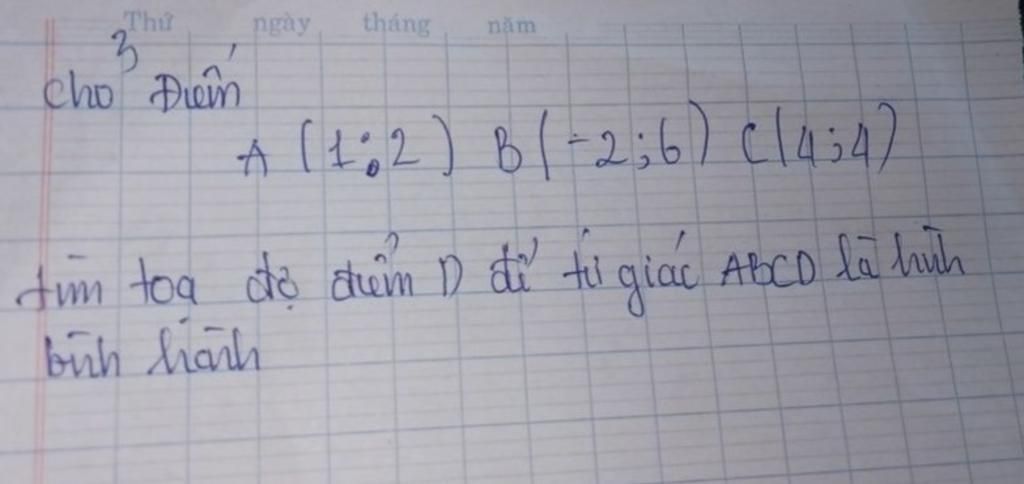 Thứ ngày tháng năm
Cho 3 Điểm
A (1;2) B(-2;6) C(4;4)
tìm toạ độ điểm D để tứ giác ABCD là hình
bình hành